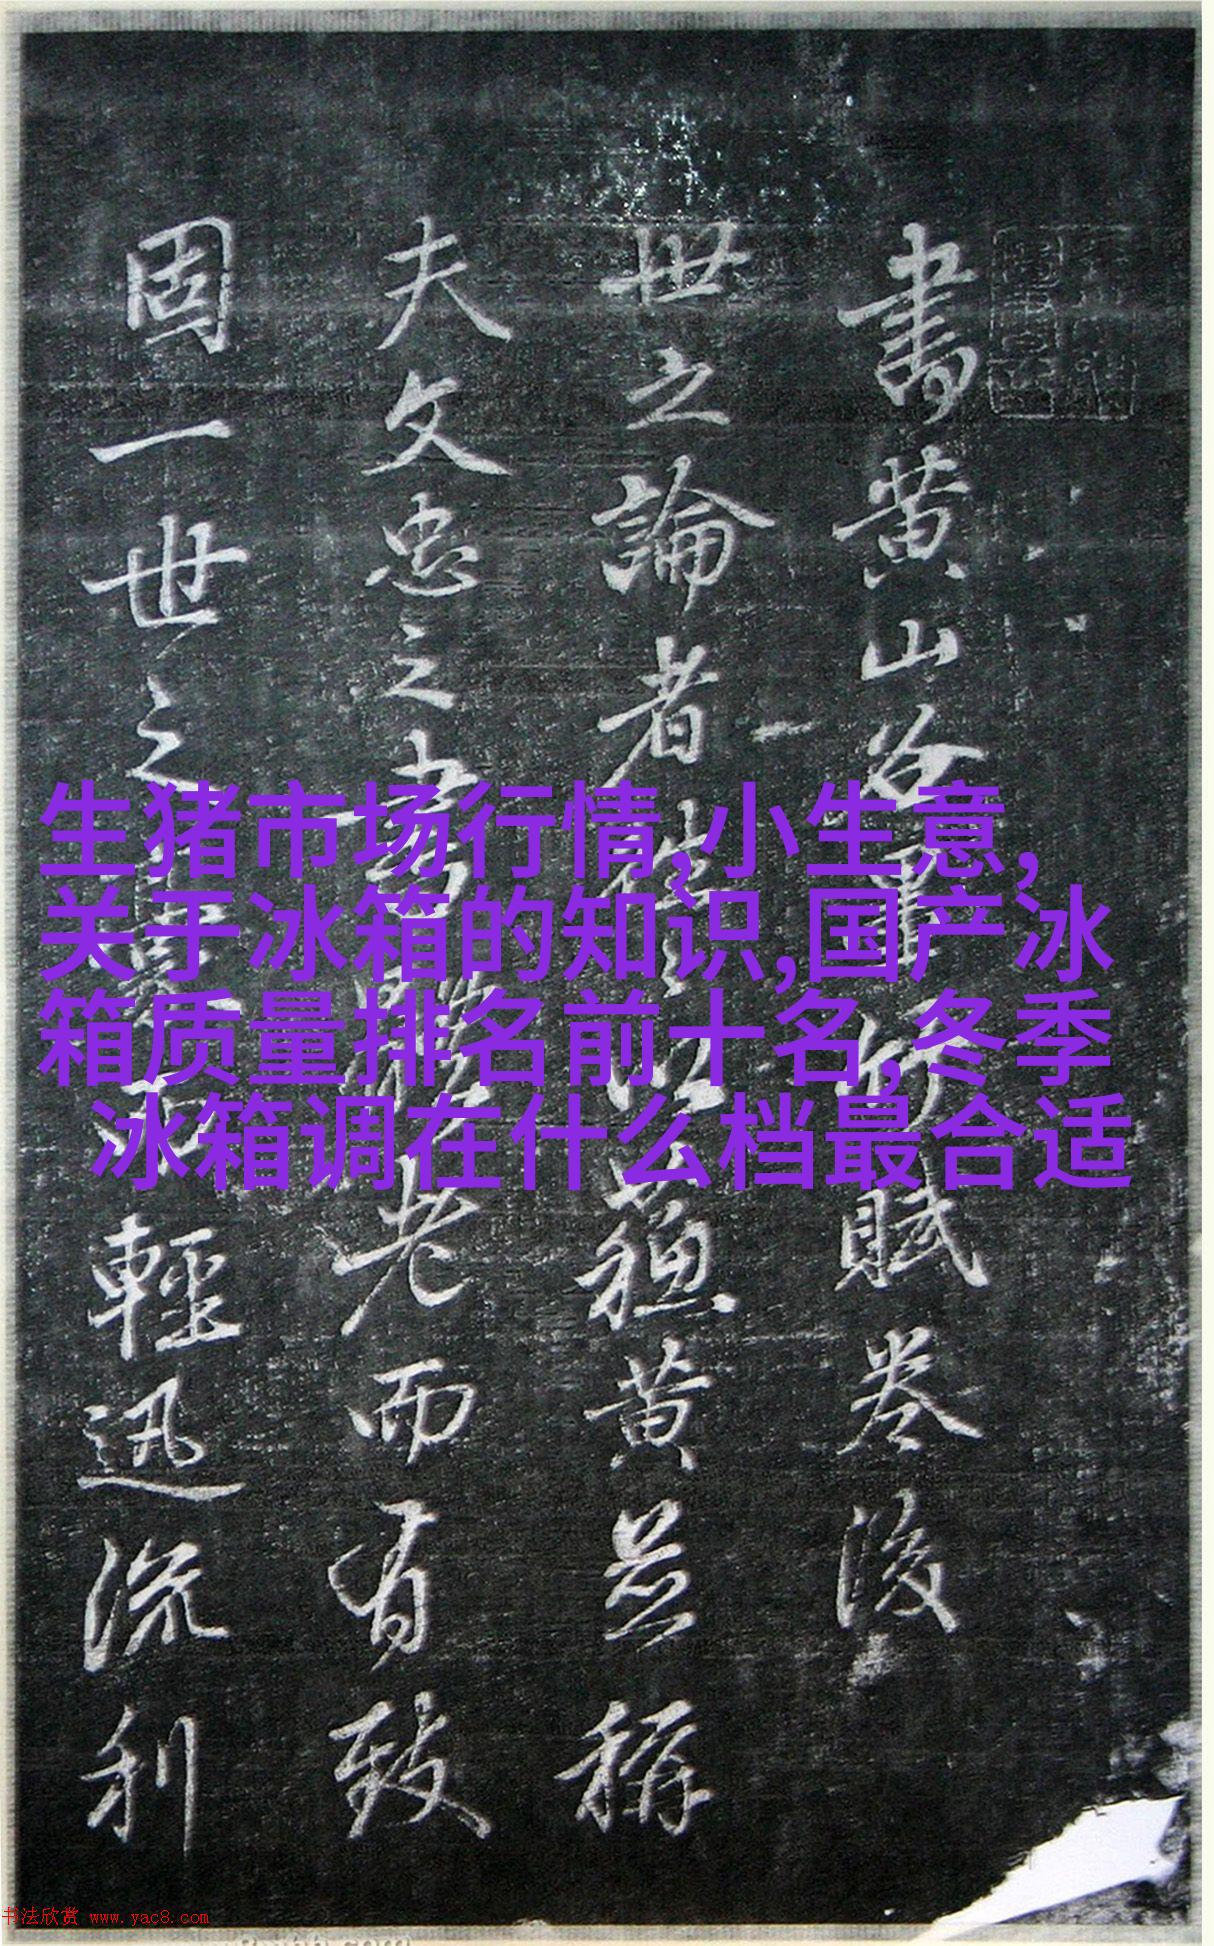 書黄山谷賦卷後
世之論者以蘓黄並稱
夫文忠之書老而有致
固一世之輕迅流利
生猪市场行情,小生意,
关于冰箱的知识,国产冰
箱质量排名前十名,冬季
冰箱调在什么档最合适
书法欣赏 www.yac8.com